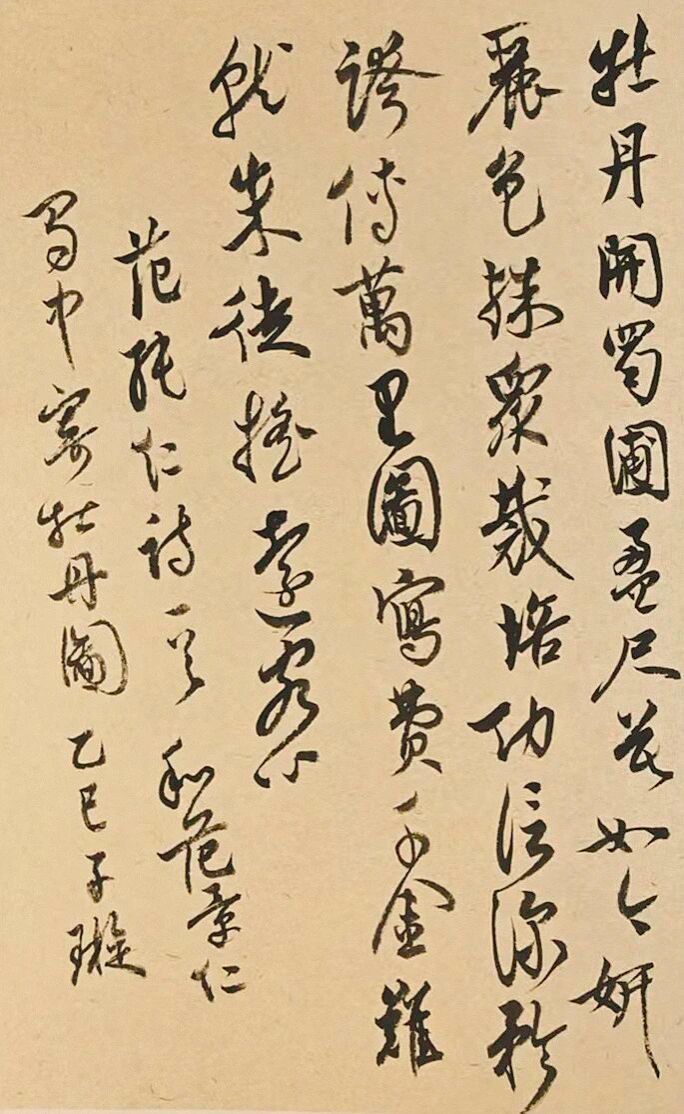 牡丹開蜀圃盈尺莫如今妍
麗色殊衆栽培功信深矜
誇傳萬里圖寫費千金難
就朱徒搖遠客心
范純仁詩一首 和范景仁
蜀中寄牡丹圖 乙巳子璇